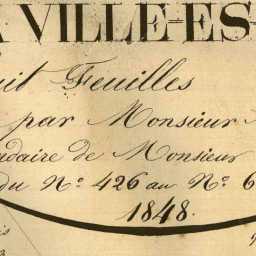 A VILLE-ES-
uit Feuilles
par Monsieur
daire de Monsieur
du No. 426 au No. 6
1848.
is
3